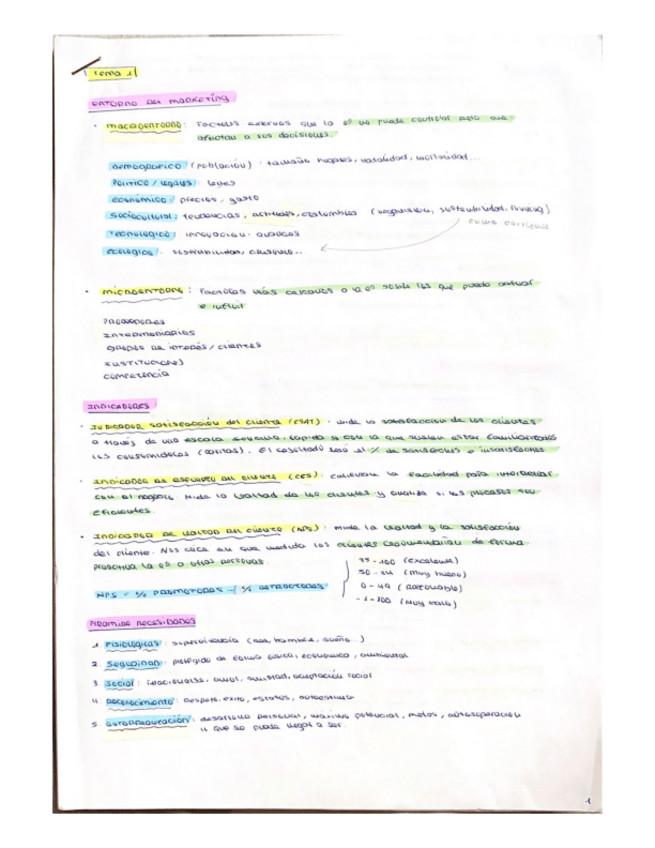 Tema 1
ENTORNO DEL MARKETING
· MACROENTORNO: Factores externos que la eª no puede controlar pero que
afectan a sus decisiones.
DEMOGRÁFICO (población): tamaño hogares, natalidad, mortalidad...
POLÍTICO / legales: leyes
ECONÓMICO: precios, gasto
SOCIOCULTURAL: tendencias, actitudes, costumbres (veganismo, sostenibilidad,
TECNOLÓGICO: innovación, avances
ECOLÓGICO: sostenibilidad, consumo...
· MICROENTORNO: Factores más cercanos a la eª sobre los que puede actuar
e influir
PROVEEDORES
INTERMEDIARIOS
GRUPOS DE INTERÉS / CLIENTES
SUSTITUCIONES
COMPETENCIA
INDICADORES
· INDICADOR SATISFACCIÓN del cliente (CSAT): mide la satisfacción de los clientes
a través de una escala sencilla, rápida y con la que suelen estar familiarizados
los consumidores El resultado será el % de satisfechos e insatisfechos
· INDICADOR DE ESFUERZO DEL CLIENTE (CES): facilidad para interactuar
con el negocio. Mide la lealtad de los clientes y analiza si los procesos son
eficientes.
· INDICADOR DE LEALTAD DEL CLIENTE (NPS): Mide la lealtad y la satisfacción
del cliente. Nos dice en que medida los clientes recomendarían de forma
proactiva la eª a otras personas.
75-100 (excelente)
50-74 (Muy bueno)
0-49 (Razonable)
-1-100 (Muy malo)
NPS = % PROMOTORES - % DETRACTORES
PIRÁMIDE NECESIDADES
1. FISIOLÓGICAS: supervivencia (sed, hambre, sueño...)
2. SEGURIDAD: protegido de forma física, económica, ambiental
3. SOCIAL: relaciones, amor, amistad, aceptación social
4. RECONOCIMIENTO: respeto, éxito, estatus, autoestima
5. AUTORREALIZACIÓN: desarrollo personal, máximo potencial, metas, autosuperación
lo que se puede llegar a ser.
1